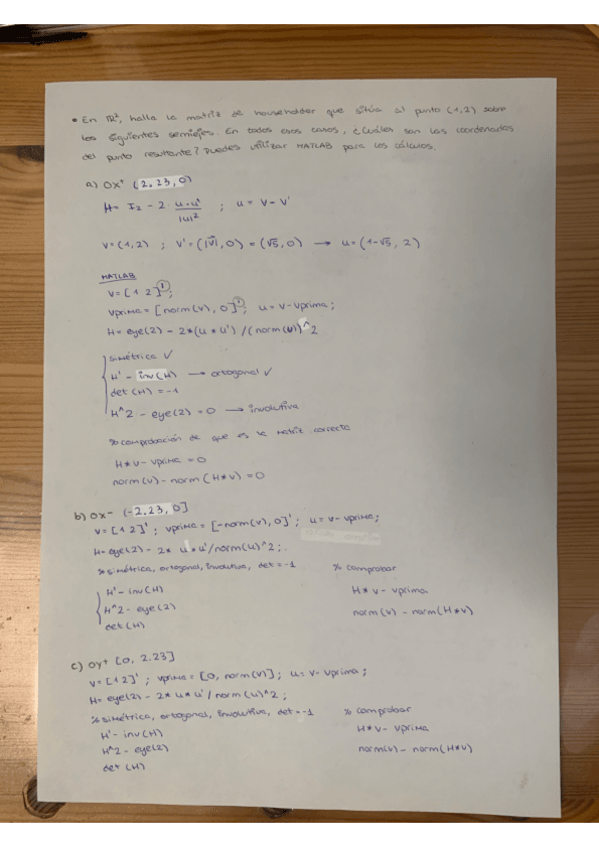 • En ℝ², halla la matriz de householder que sitúa al punto (1,2) sobre
los siguientes semiejes. En todos esos casos, ¿cuáles son las coordenadas
del punto resultante? Puedes utilizar MATLAB para los cálculos.
a) Ox⁺ (2.23,0)
H = I₂ - 2 · u·uᵗ / |u|² ; u = v - v'
v = (1,2) ; v' = (|v⃗|,0) = (√5,0) → u = (1-√5, 2)
MATLAB
v = [1 2]';
vprima = [norm(v), 0]'; u = v - vprima;
H = eye(2) - 2*(u*u')/(norm(u))^2
simétrica ✓
H' - inv(H) → ortogonal ✓
det(H) = -1
H^2 - eye(2) = 0 → involutiva
% comprobación de que es la matriz correcta
H*v - vprima = 0
norm(v) - norm(H*v) = 0
b) Ox- (-2.23,0]
v = [1 2]' ; vprima = [-norm(v), 0]' ; u = v - vprima;
H = eye(2) - 2* u*u'/norm(u)^2;
% simétrica, ortogonal, involutiva, det = -1 % comprobar
H' - inv(H) H*v - vprima
H^2 - eye(2) norm(v) - norm(H*v)
det(H)
c) Oy+ [0, 2.23]
v = [1 2]' ; vprima = [0, norm(v)]; u = v - vprima;
H = eye(2) - 2*u*u'/norm(u)^2;
% simétrica, ortogonal, involutiva, det = -1 % comprobar
H' - inv(H) H*v - vprima
H^2 - eye(2) norm(v) - norm(H*v)
det(H)